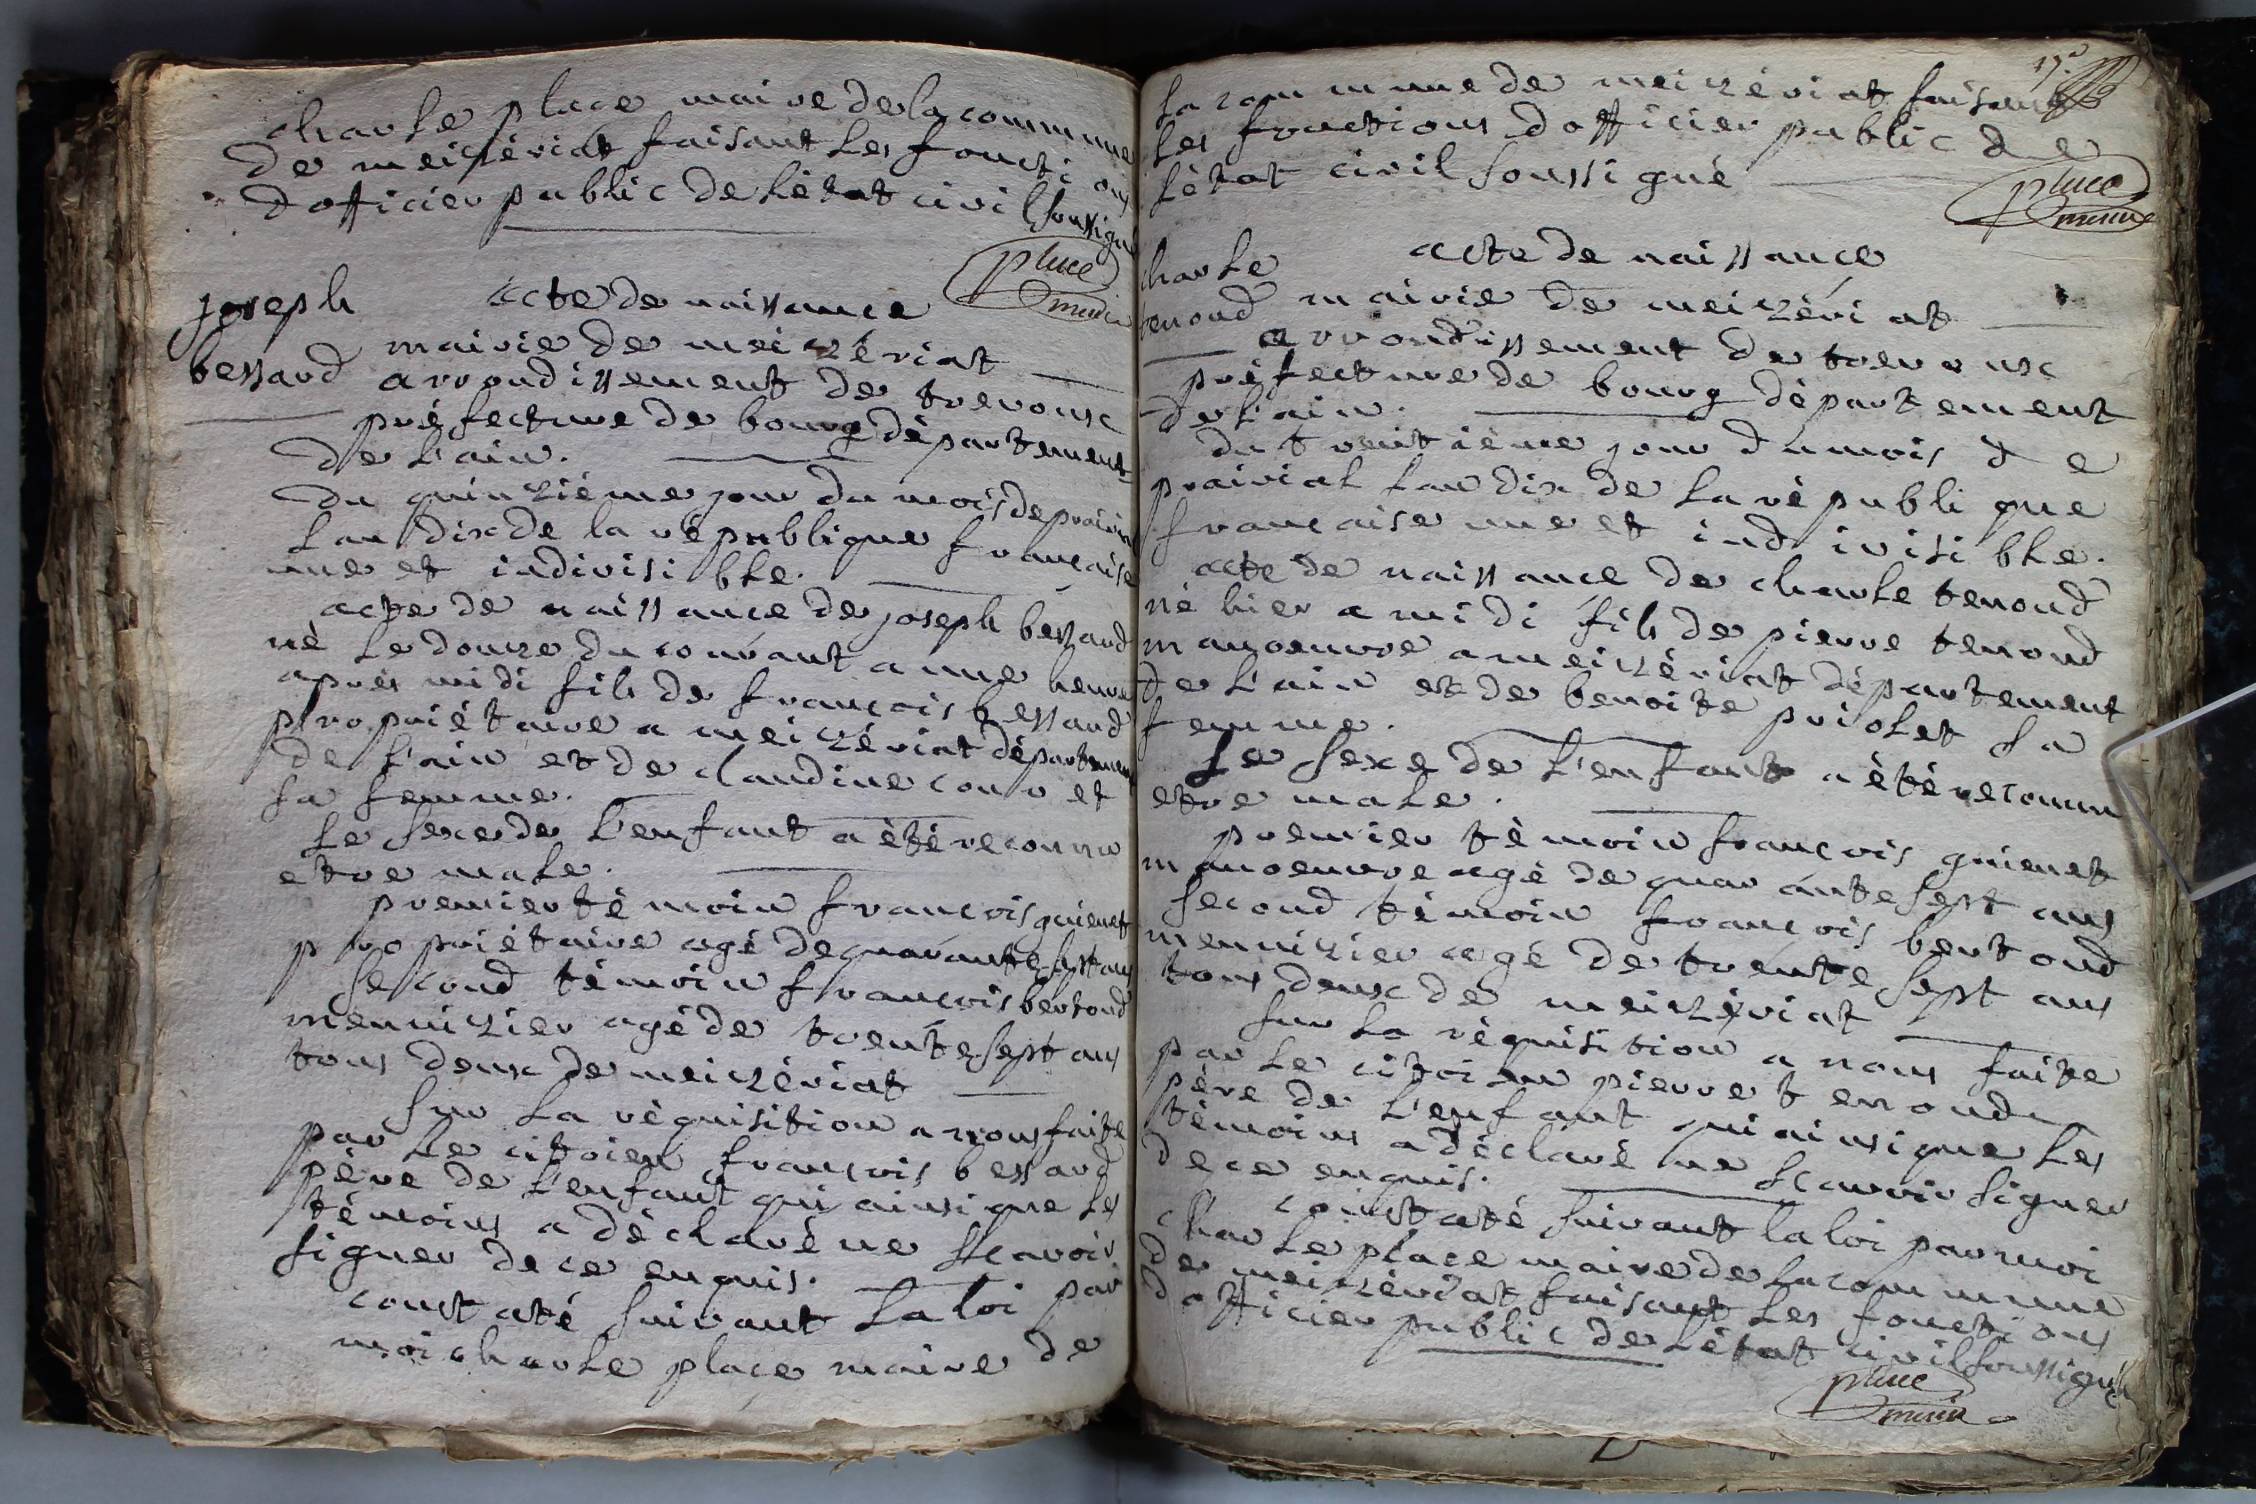 charle place maire de la commune
de meizériat faisant les fonctions
d officier public de létat civil soussigné
place
maire
joseph
bessard
acte de naissance
mairie de meizériat
arrondissement de trevoux
préfecture de bourg département
de l'ain.
du quinzième jour du mois de prairial
lan dix de la république francaise
une et indivisi ble.
acte de naissance de joseph bessard
né le douze du courant a une heure
aprés midi fils de francois bessard
propriétaire a meizériat département
de l'ain et de claudine couret
sa femme.
le sexe de l'enfant a été reconnu
etre male.
premier témoin francois guienet
propriétaire agé de quarante sept ans
second témoin francois bertoud
menuizier agé de trente sept ans
tous deux de meizériat
sur la réquisition a nous faite
par le citoien francois bessard
père de l'enfant qui ainsi que les
témoins a déclaré ne scavoir
signer de ce enquis.
constaté suivant la loi par
moi charle place maire de
17.e
la commune de meizériat faisant
les fonctions d officier public de
létat civil soussigné
place
maire
charle
tenoud
acte de naissance
mairie de meizériat
arrondissement de trevoux
préfecture de bourg département
de l'ain.
du trentième jour du mois de
prairial lan dix de la république
francaise une et indivisi ble.
acte de naissance de charle tenoud
né hier a midi fils de pierre tenoud
manoeuvre a meizériat département
de l'ain et de benoite priolet sa
femme.
le sexe de l'enfant a été reconnu
etre male.
premier témoin francois guienet
manoeuvre agé de quarante sept ans
second témoin francois bertoud
menuizier agé de trente sept ans
tous deux de meizériat
sur la réquisition a nous faite
par le citoien pierre tenoud
père de l'enfant qui ainsi que les
témoins a déclaré ne scavoir signer
de ce enquis.
constaté suivant la loi par moi
charle place maire de la commune
de meizériat faisant les fonctions
d officier public de létat civil soussigné
place
maire